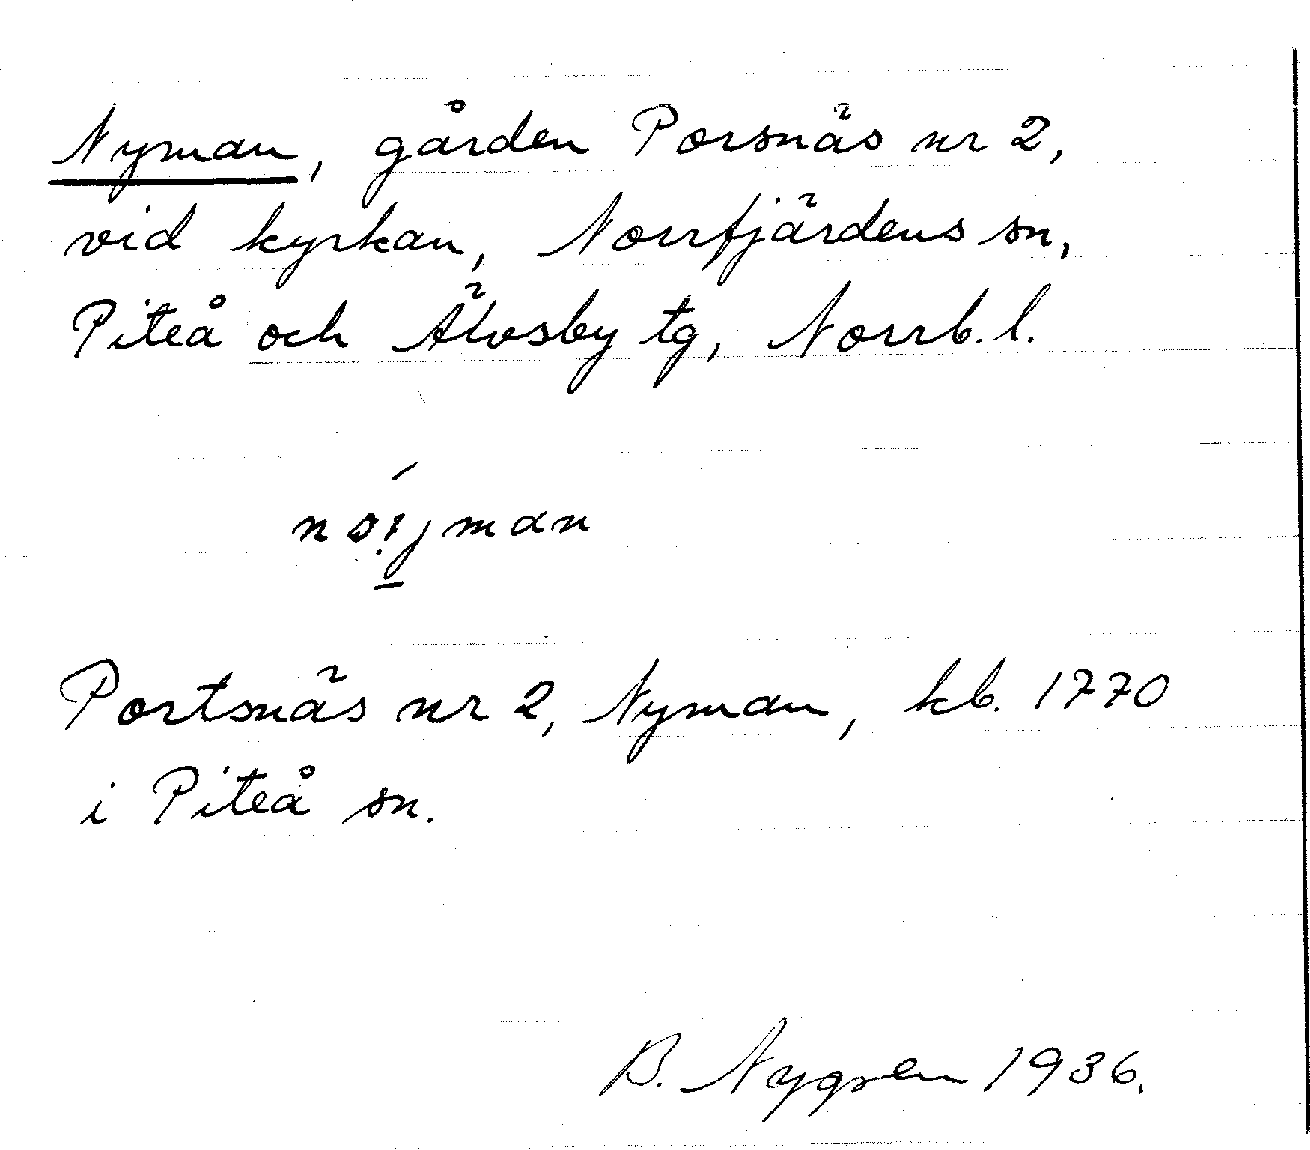 Nyman, gården Porsnäs nr 2,
vid kyrkan, Norrfjärdens sn,
Piteå och Älvsby tg, Norrb. l.
Portsnäs nr 2, Nyman, kb. 1770
i Piteå sn.
B. Nygren 1936.